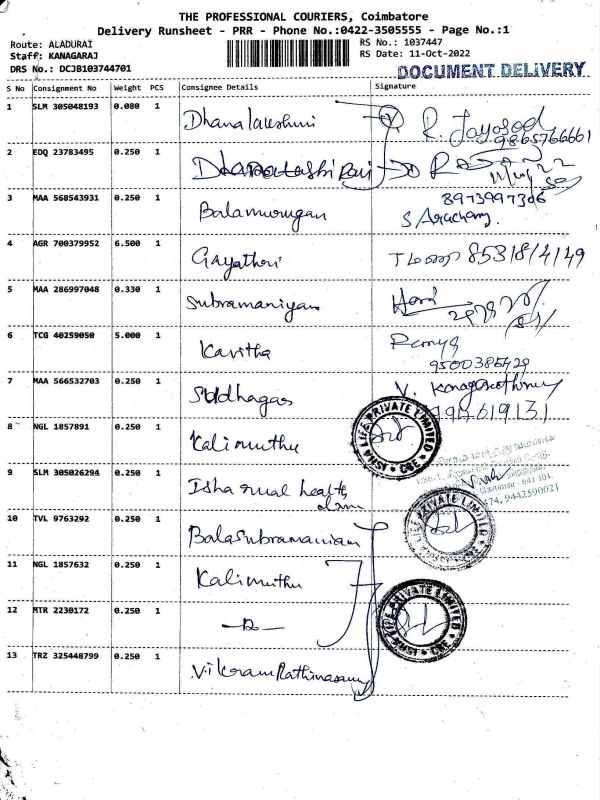 THE PROFESSIONAL COURIERS, Coimbatore
Delivery Runsheet - PRR - Phone No.:0422-3505555 - Page No.:1
Route: ALADURAI
RS No.: 1037447
Staff: KANAGARAJ
RS Date: 11-Oct-2022
DRS No.: DCJB103744701
DOCUMENT DELIVERY
S No Consignment No Weight PCS Consignee Details Signature
1 SLM 305048193 0.080 1 Dhanalakshmi
9865766661
2 EDQ 23783495 0.250 1
8973997306
3 MAA 568543931 0.250 1 Balamurugan
4 AGR 700379952 6.500 1 Gayathri
5 MAA 286997048 0.330 1 Subramaniyan
6 TCG 40259050 5.000 1 Kavitha Remya
9500385429
7 MAA 566532703 0.250 1
8 NGL 1857891 0.250 1 Kalimuthu
LIFE PRIVATE LIMITED CBE
9 SLM 305026294 0.250 1 Isha rual health
641 104
9442590021
10 TVL 9763292 0.250 1 Balasubramaniam
LIFE PRIVATE LIMITED
11 NGL 1857632 0.250 1 Kalimuthu
12 MTR 2230172 0.250 1 -Do-
LIFE PRIVATE LIMITED CBE
13 TRZ 325448799 0.250 1 Vikram Rathinasamy